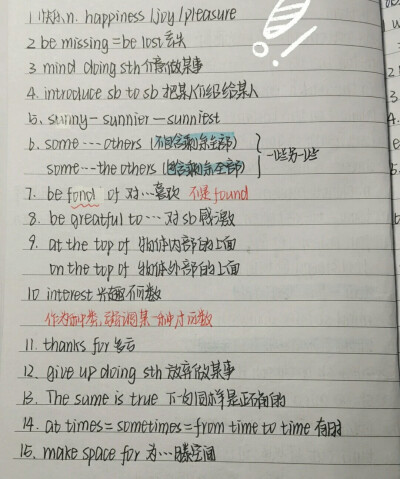 1 快乐n. happiness /joy /pleasure
2 be missing = be lost 丢失
3 mind doing sth 介意做某事
4. introduce sb to sb 把某人介绍给某人
5. sunny – sunnier – sunniest
6. some ··· others (不包含剩余全部)
some ··· the others (包含剩余全部)
一些另一些
7. be fond of 对···喜欢 不是found
8. be greatful to ··· 对sb感激
9. at the top of 物体内部的上面
on the top of 物体外部的上面
10 interest 兴趣不可数
作为种类,强调某一种时可数
11. thanks for 多亏
12. give up doing sth 放弃做某事
13. The same is true 下句同样是正确的
14. at times = sometimes = from time to time 有时
15. make space for 为···腾空间